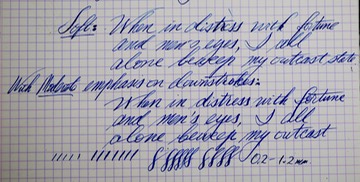 Soft: When in distress with fortune
and men's eyes, I all
alone beweep my outcast state.
With Moderate emphasis on downstrokes:
When in distress with fortune
and men's eyes, I all
alone beweep my outcast
0.2-1.2mm